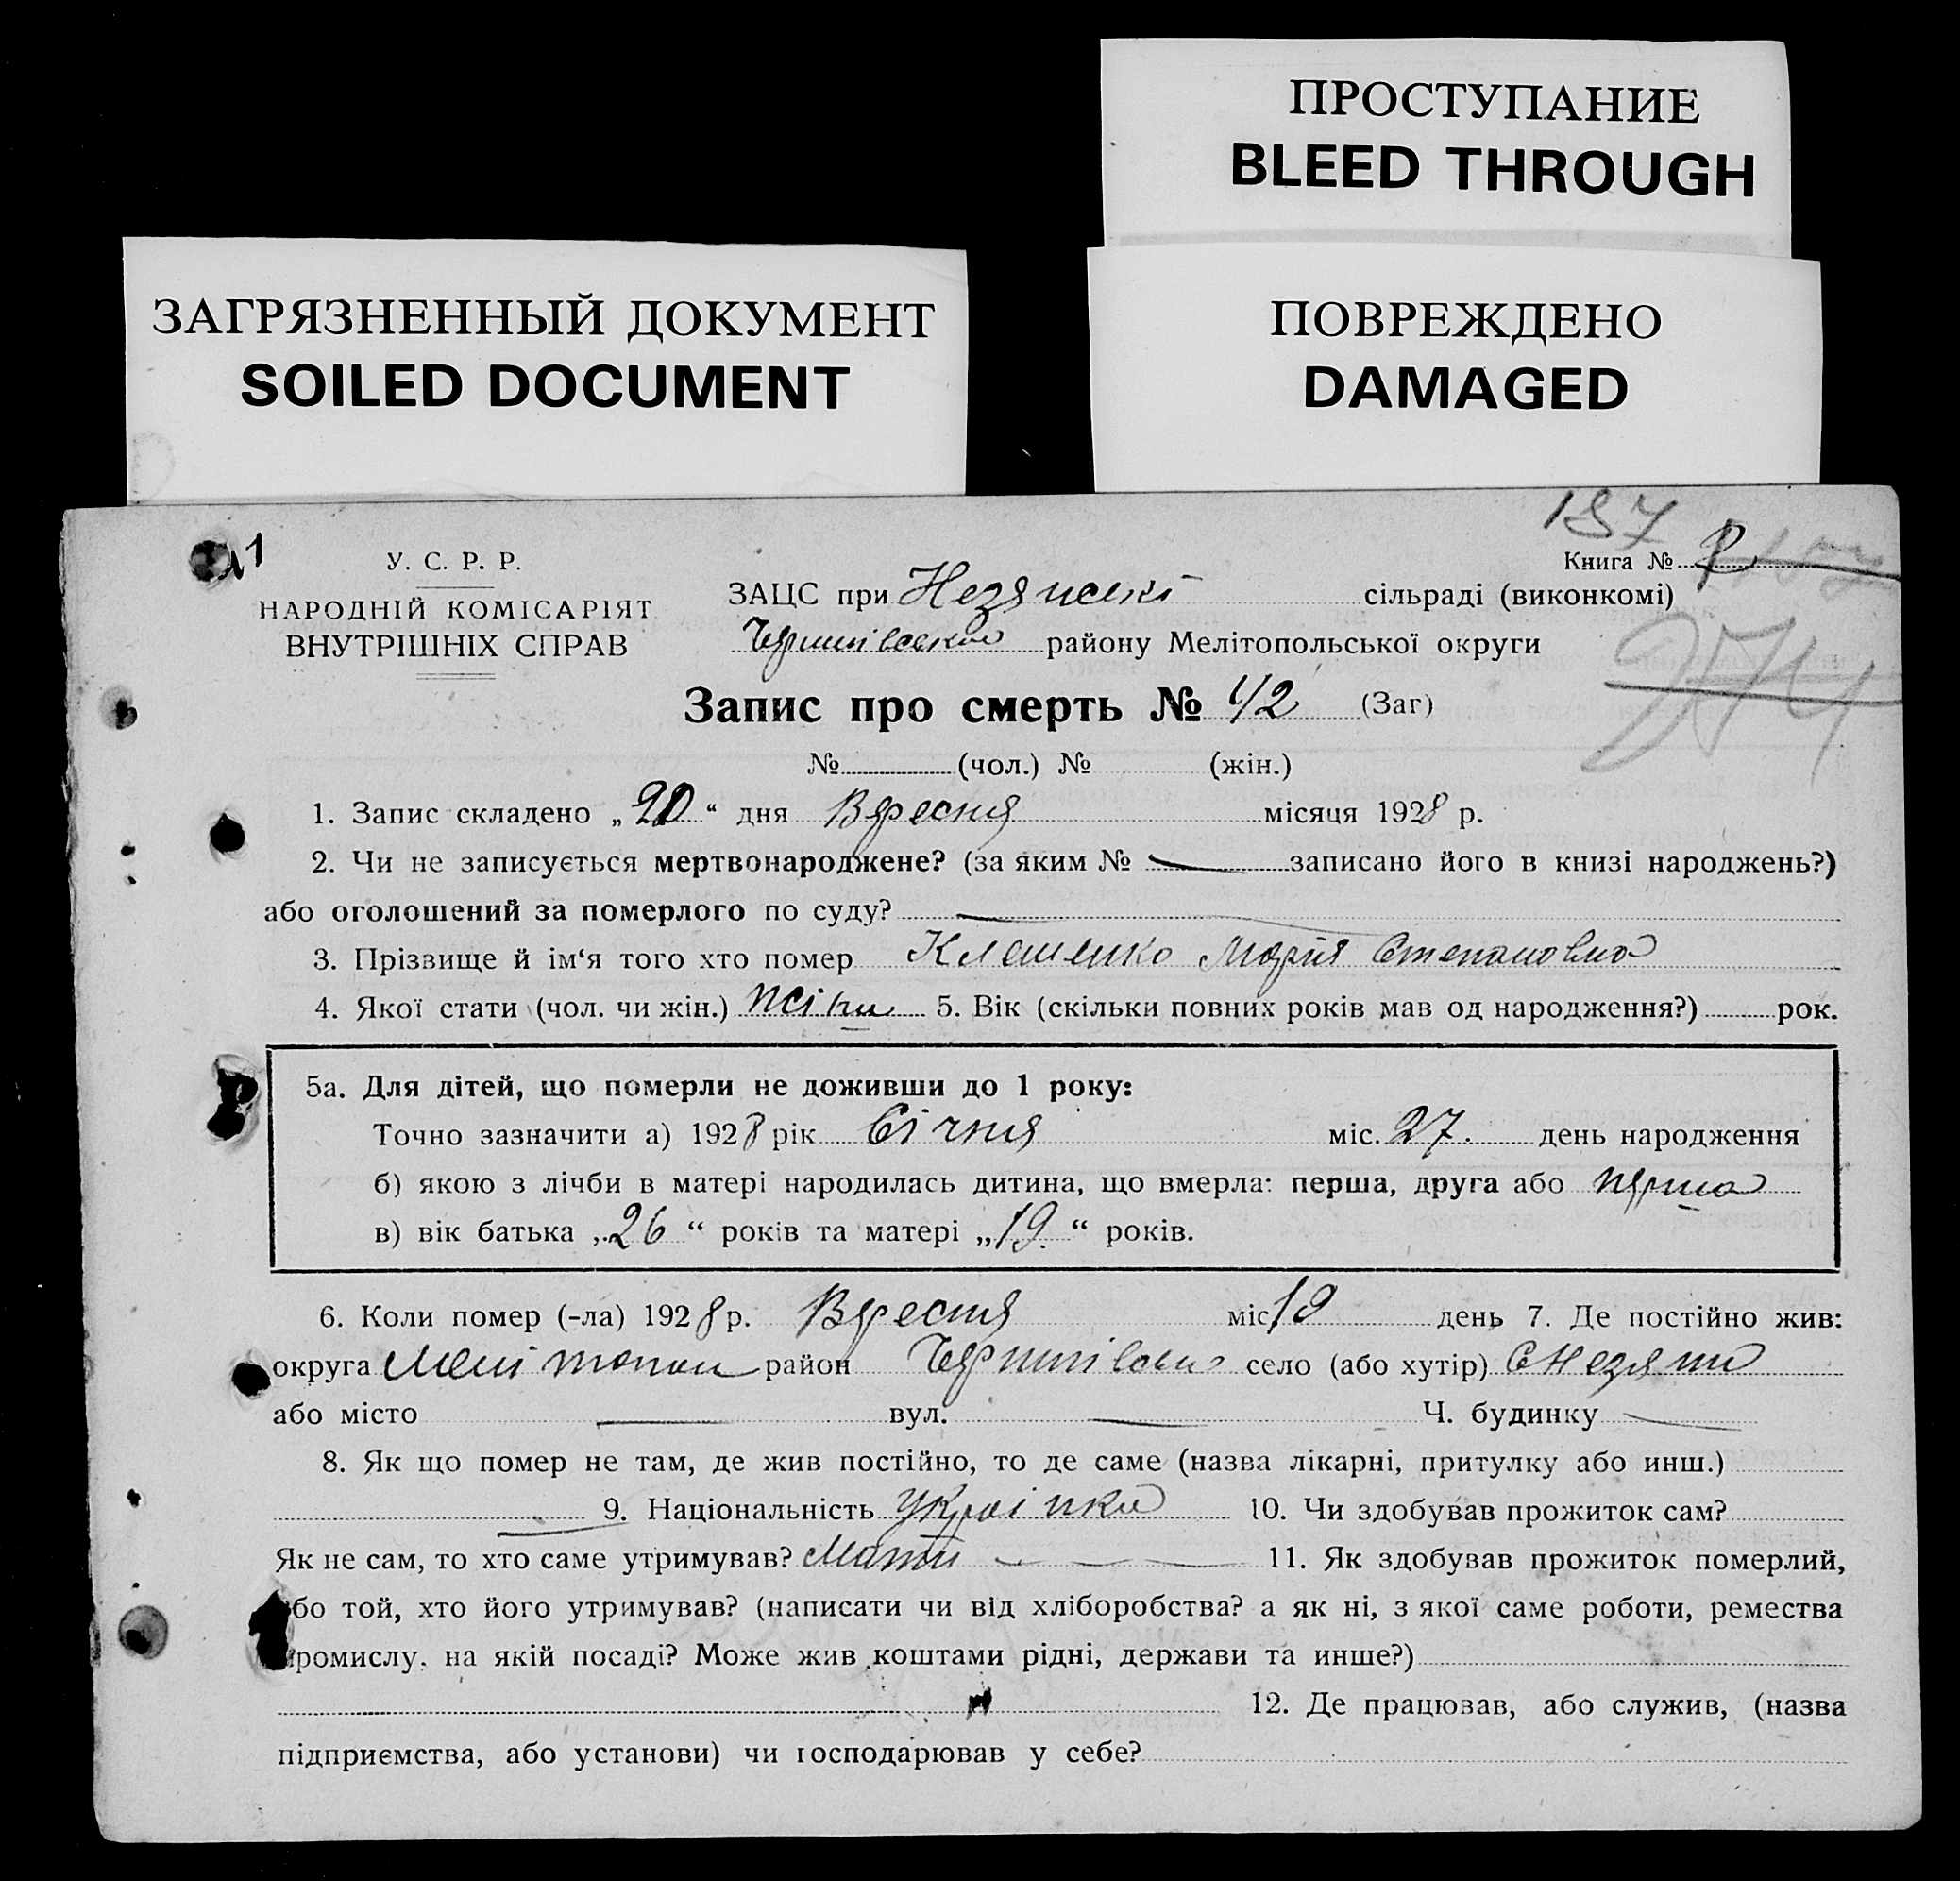 ПРОСТУПАНИЕ
BLEED THROUGH
ЗАГРЯЗНЕННЫЙ ДОКУМЕНТ
SOILED DOCUMENT
ПОВРЕЖДЕНО
DAMAGED
187
У. С. Р. Р.
НАРОДНІЙ КОМІСАРІЯТ
ВНУТРІШНІХ СПРАВ
Книга №
ЗАЦС при сільраді (виконкомі)
району Мелітопольської округи
Запис про смерть № 42 (Заг)
№ (чол.) № (жін.)
1. Запис складено „20“ дня Вересня місяця 1928 р.
2. Чи не записується мертвонароджене? (за яким № — записано його в книзі народжень?)
або оголошений за померлого по суду? —
3. Прізвище й ім‘я того хто помер Марія Степановна
4. Якої стати (чол. чи жін.) 5. Вік (скільки повних років мав од народження?) рок.
5а. Для дітей, що померли не доживши до 1 року:
Точно зазначити а) 1928 рік Січня міс. 27. день народження
б) якою з лічби в матері народилась дитина, що вмерла: перша, друга або перша
в) вік батька „26“ років та матері „19.“ років.
6. Коли помер (-ла) 1928 р. Вересня міс 19 день 7. Де постійно жив:
округа район село (або хутір)
або місто — вул. — Ч. будинку —
8. Як що помер не там, де жив постійно, то де саме (назва лікарні, притулку або инш.)
— 9. Національність Українка 10. Чи здобував прожиток сам?
Як не сам, то хто саме утримував? Мати — — — 11. Як здобував прожиток померлий,
або той, хто його утримував? (написати чи від хліборобства? а як ні, з якої саме роботи, ремества
промислу. на якій посаді? Може жив коштами рідні, держави та инше?)
12. Де працював, або служив, (назва
підприємства, або установи) чи господарював у себе?